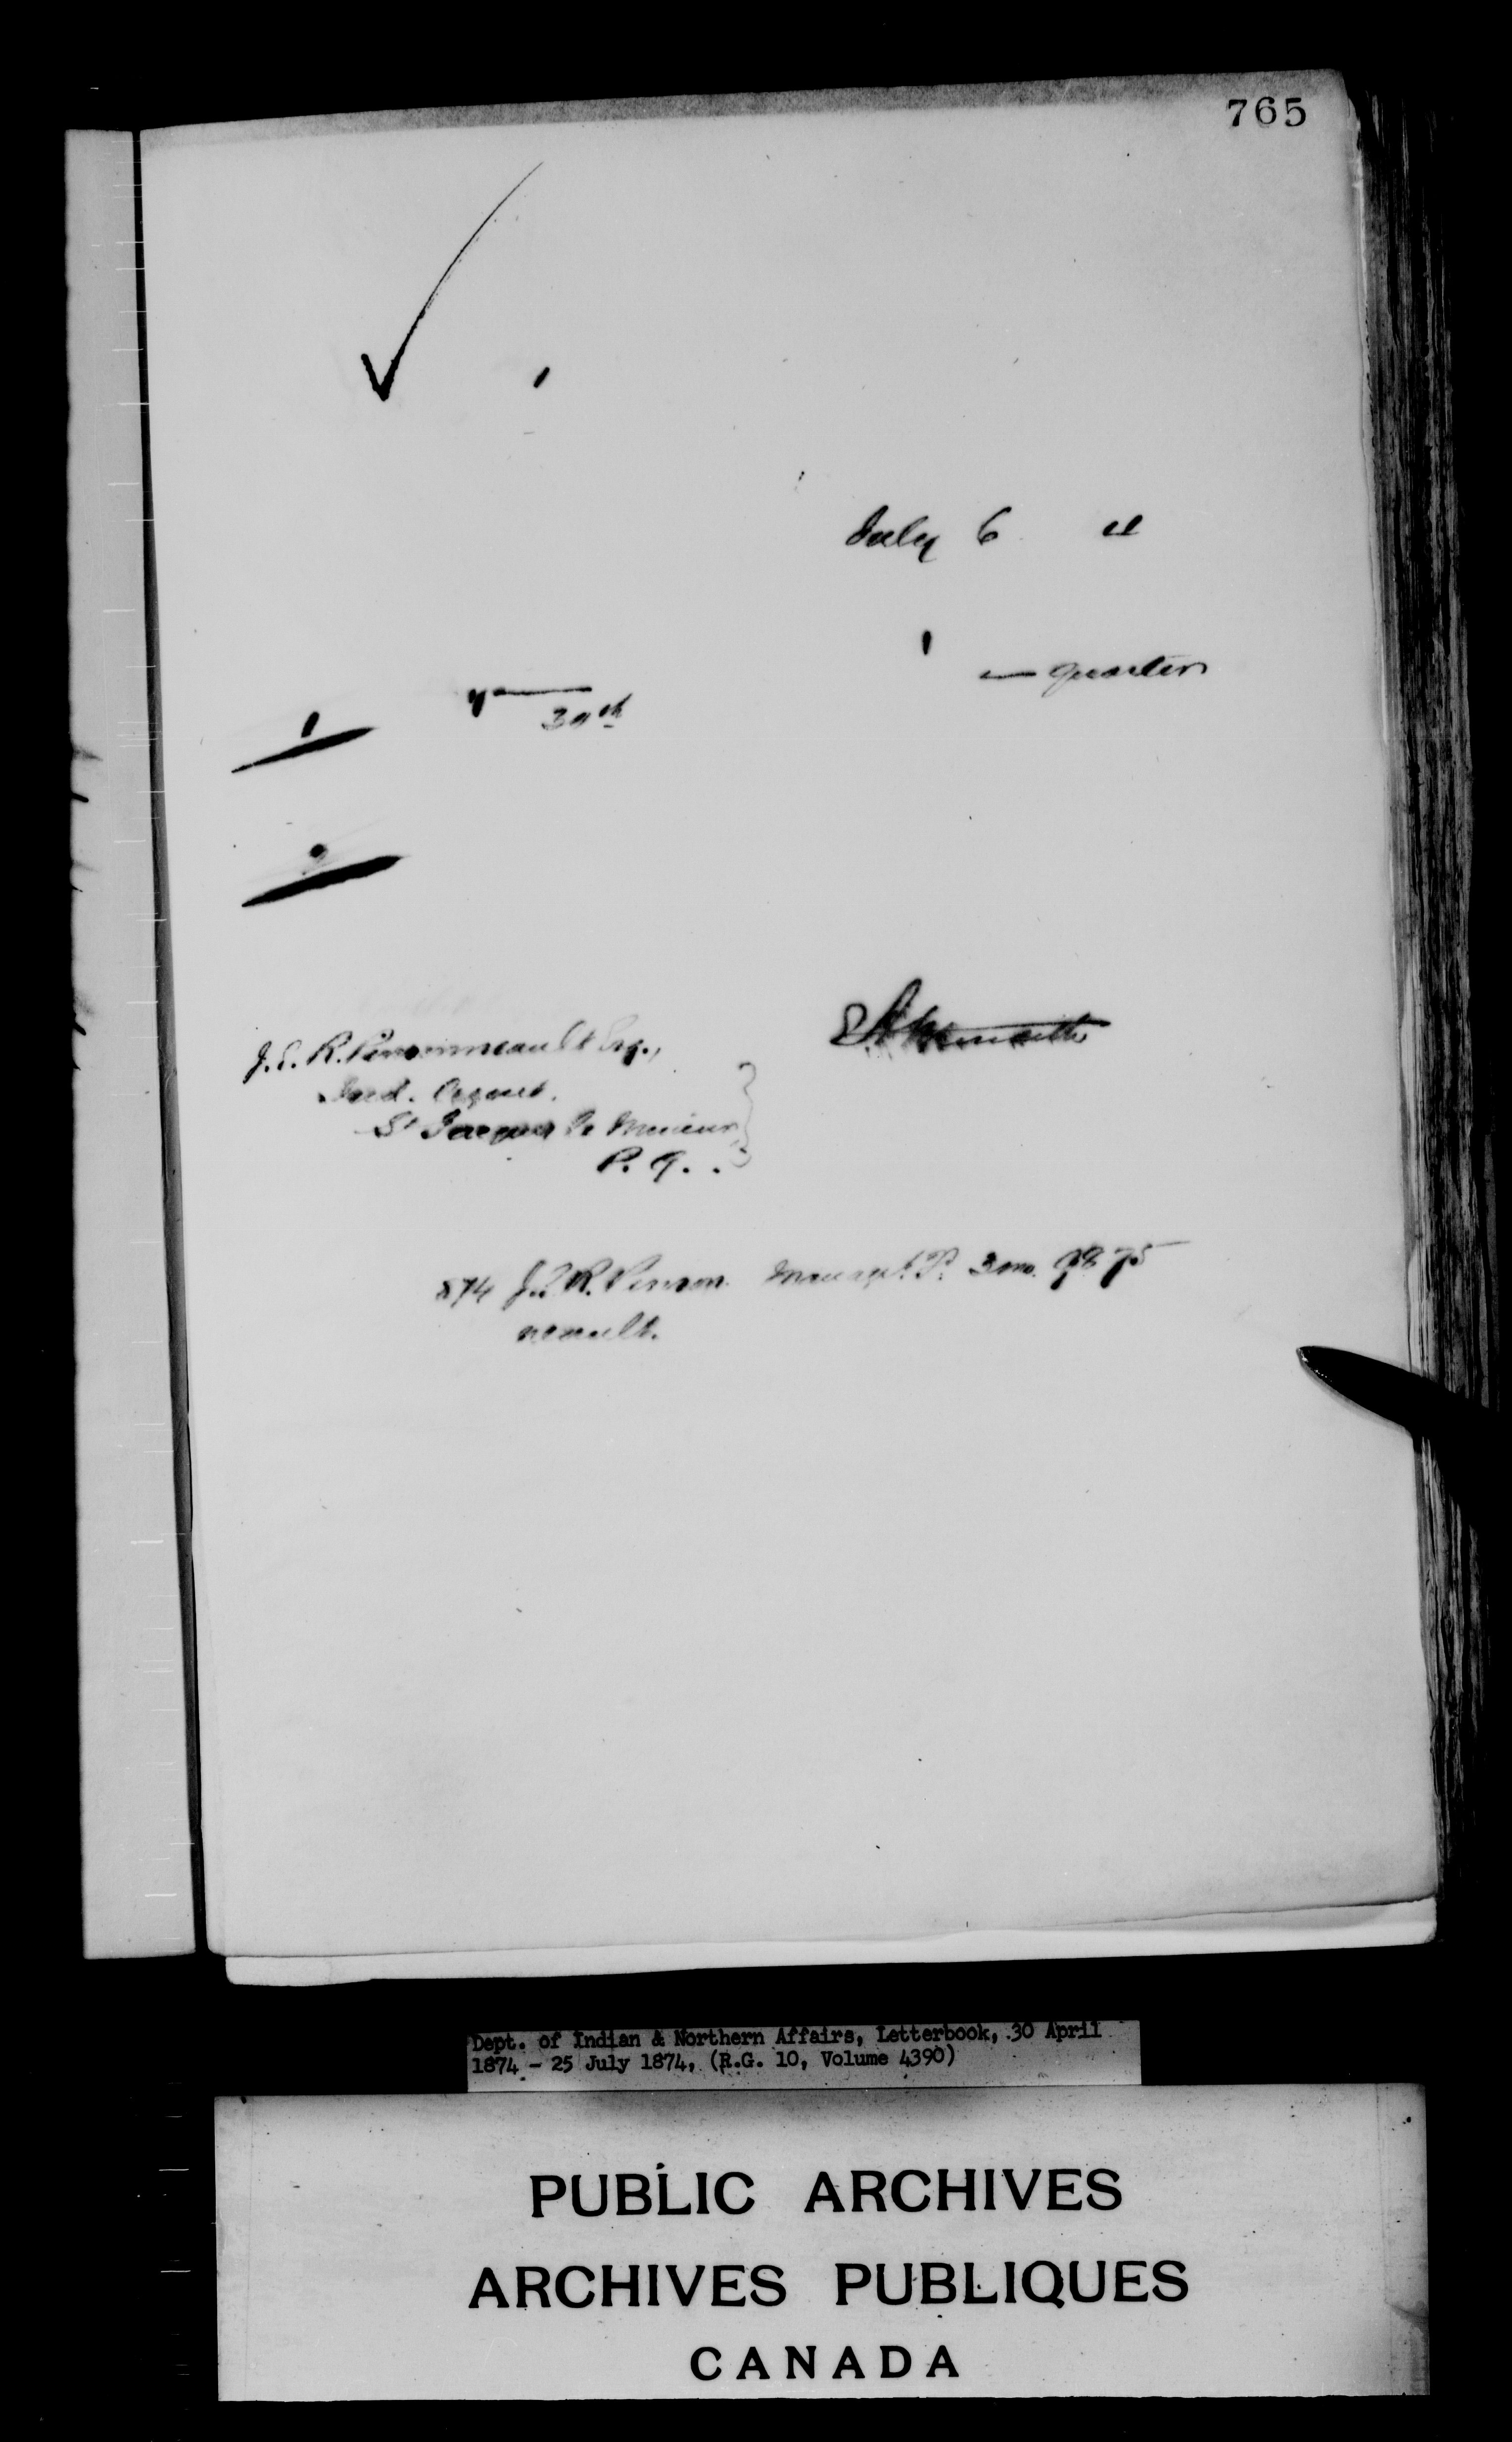 765
July 6
quarter
30th
1
2
J. E. R. Pinsonneault Esq.,
Ind. Agent.
St Jacques Le Mineur,
P. Q.
874 J. E. R. Pinson Managt. P. 3 mo. 98 75
neault.
Dept. of Indian & Northern Affairs, Letterbook, 30 April
1874 - 25 July 1874, (R.G. 10, Volume 4390)
PUBLIC ARCHIVES
ARCHIVES PUBLIQUES
CANADA